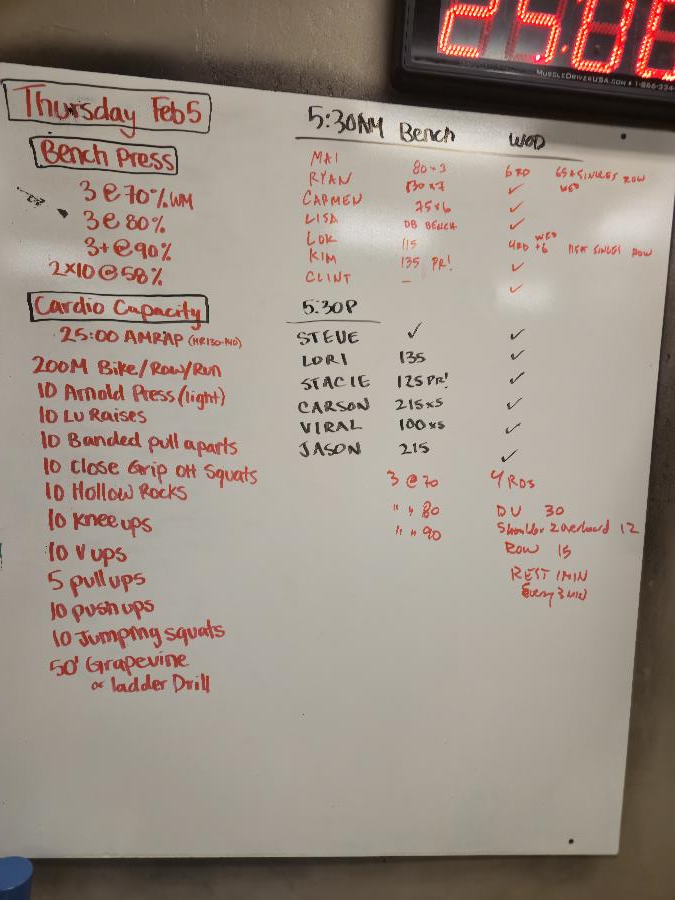 25:0
MUSCLEDRIVERUSA.COM • 1-866-334
Thursday Feb 5
Bench Press
3 @ 70% WM
3 @ 80%
3+ @ 90%
2x10 @ 58%
Cardio Capacity
25:00 AMRAP (HR130-140)
200M Bike/Row/Run
10 Arnold Press (light)
10 Lu Raises
10 Banded pull aparts
10 Close Grip OH Squats
10 Hollow Rocks
10 Knee ups
10 V ups
5 pull ups
10 push ups
10 Jumping squats
50' Grapevine
or ladder Drill
5:30AM Bench WOD
MAI 80x3 6 RD 65# SINGLES ROW
RYAN 130x7 ✓ WED
CARMEN 75x6 ✓
LISA DB BENCH ✓
LOK 115 4RD +6 WED SINGLES ROW
KIM 135 PR! ✓
CLINT — ✓
5:30P
STEVE ✓ ✓
LORI 135 ✓
STACIE 125 PR! ✓
CARSON 215x5 ✓
VIRAL 100x5 ✓
JASON 215 ✓
3 @ 70 4 RDS
" " 80 DU 30
" " 90 Shoulder 2 overhead 12
Row 15
REST 1MIN
Every 3 MIN